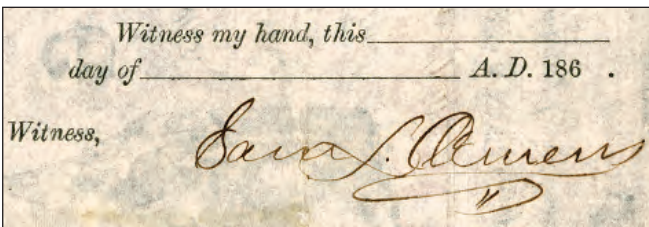 Witness my hand, this
day of A. D. 186 .
Witness, Sam L. Clemens